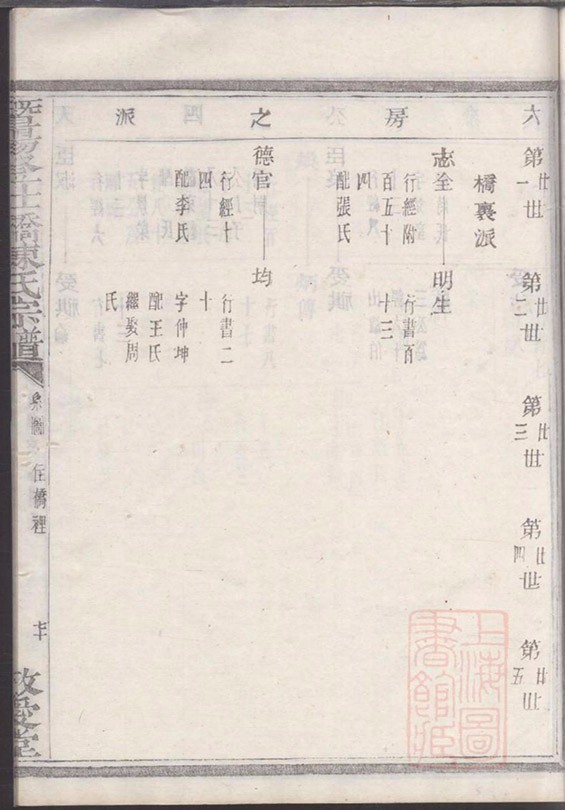 六房之派
第廿一世
第廿二世
第廿三世
第廿四世
第廿五世
橋裏派
志全
行經附
百五十
四
配張氏
明生
行書百
十三
德官
行經十
四
配李氏
均
行書二
十
字仲坤
配王氏
繼娶周
氏
橋陳氏宗譜
系圖
住橋裡
敬愛堂
上海圖書館藏